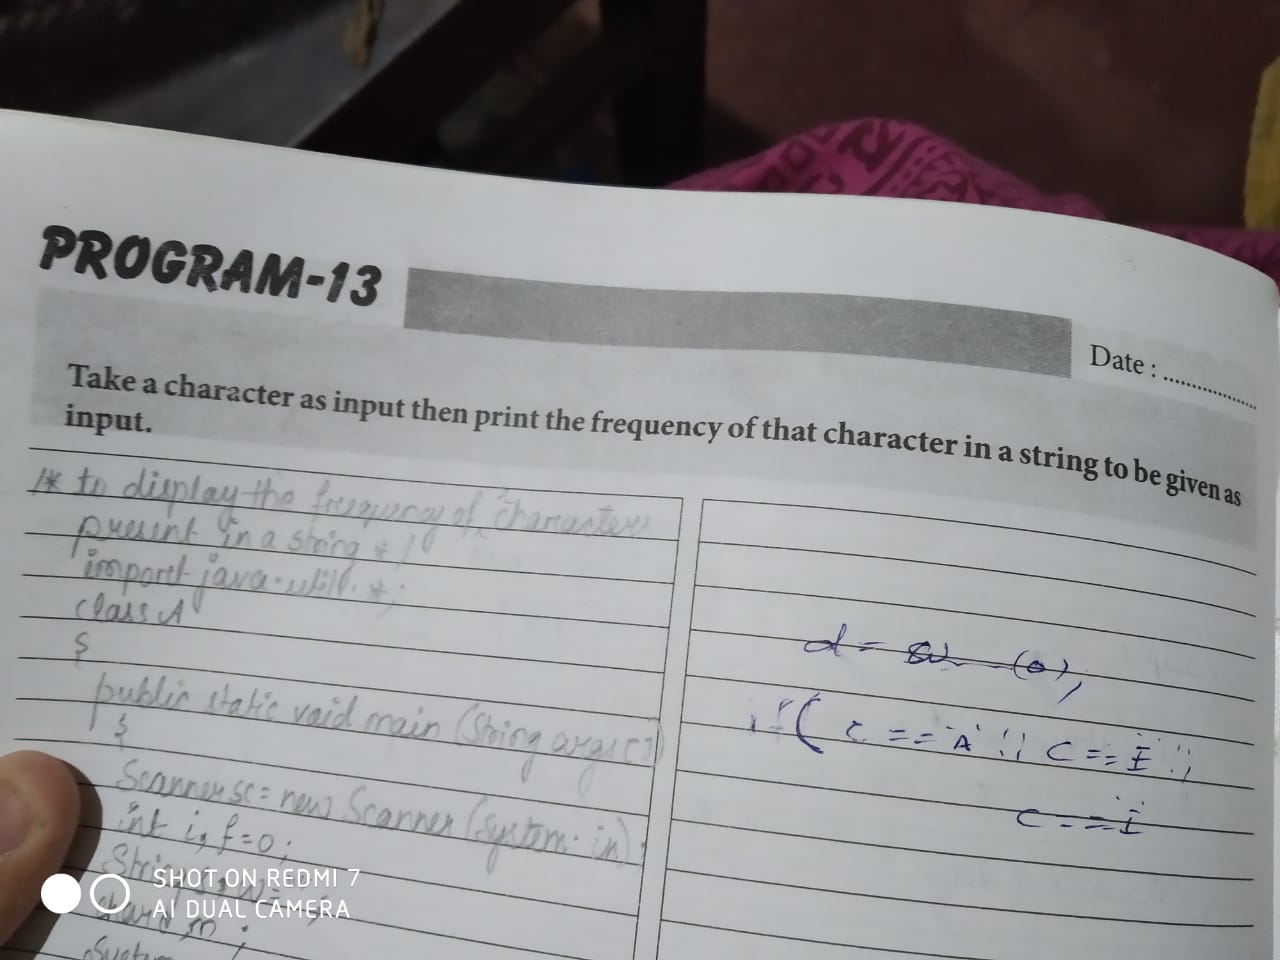 PROGRAM-13
Date : ................
Take a character as input then print the frequency of that character in a string to be given as
input.
/* to display the frequency of characters
present in a string */
import java.util.*;
class A
{
public static void main (String args[])
{
Scanner sc = new Scanner (System.in);
int i, f=0;
String
char
System
d =
if( c == 'A' || c == 'E' ||
c == 'I'
SHOT ON REDMI 7
AI DUAL CAMERA